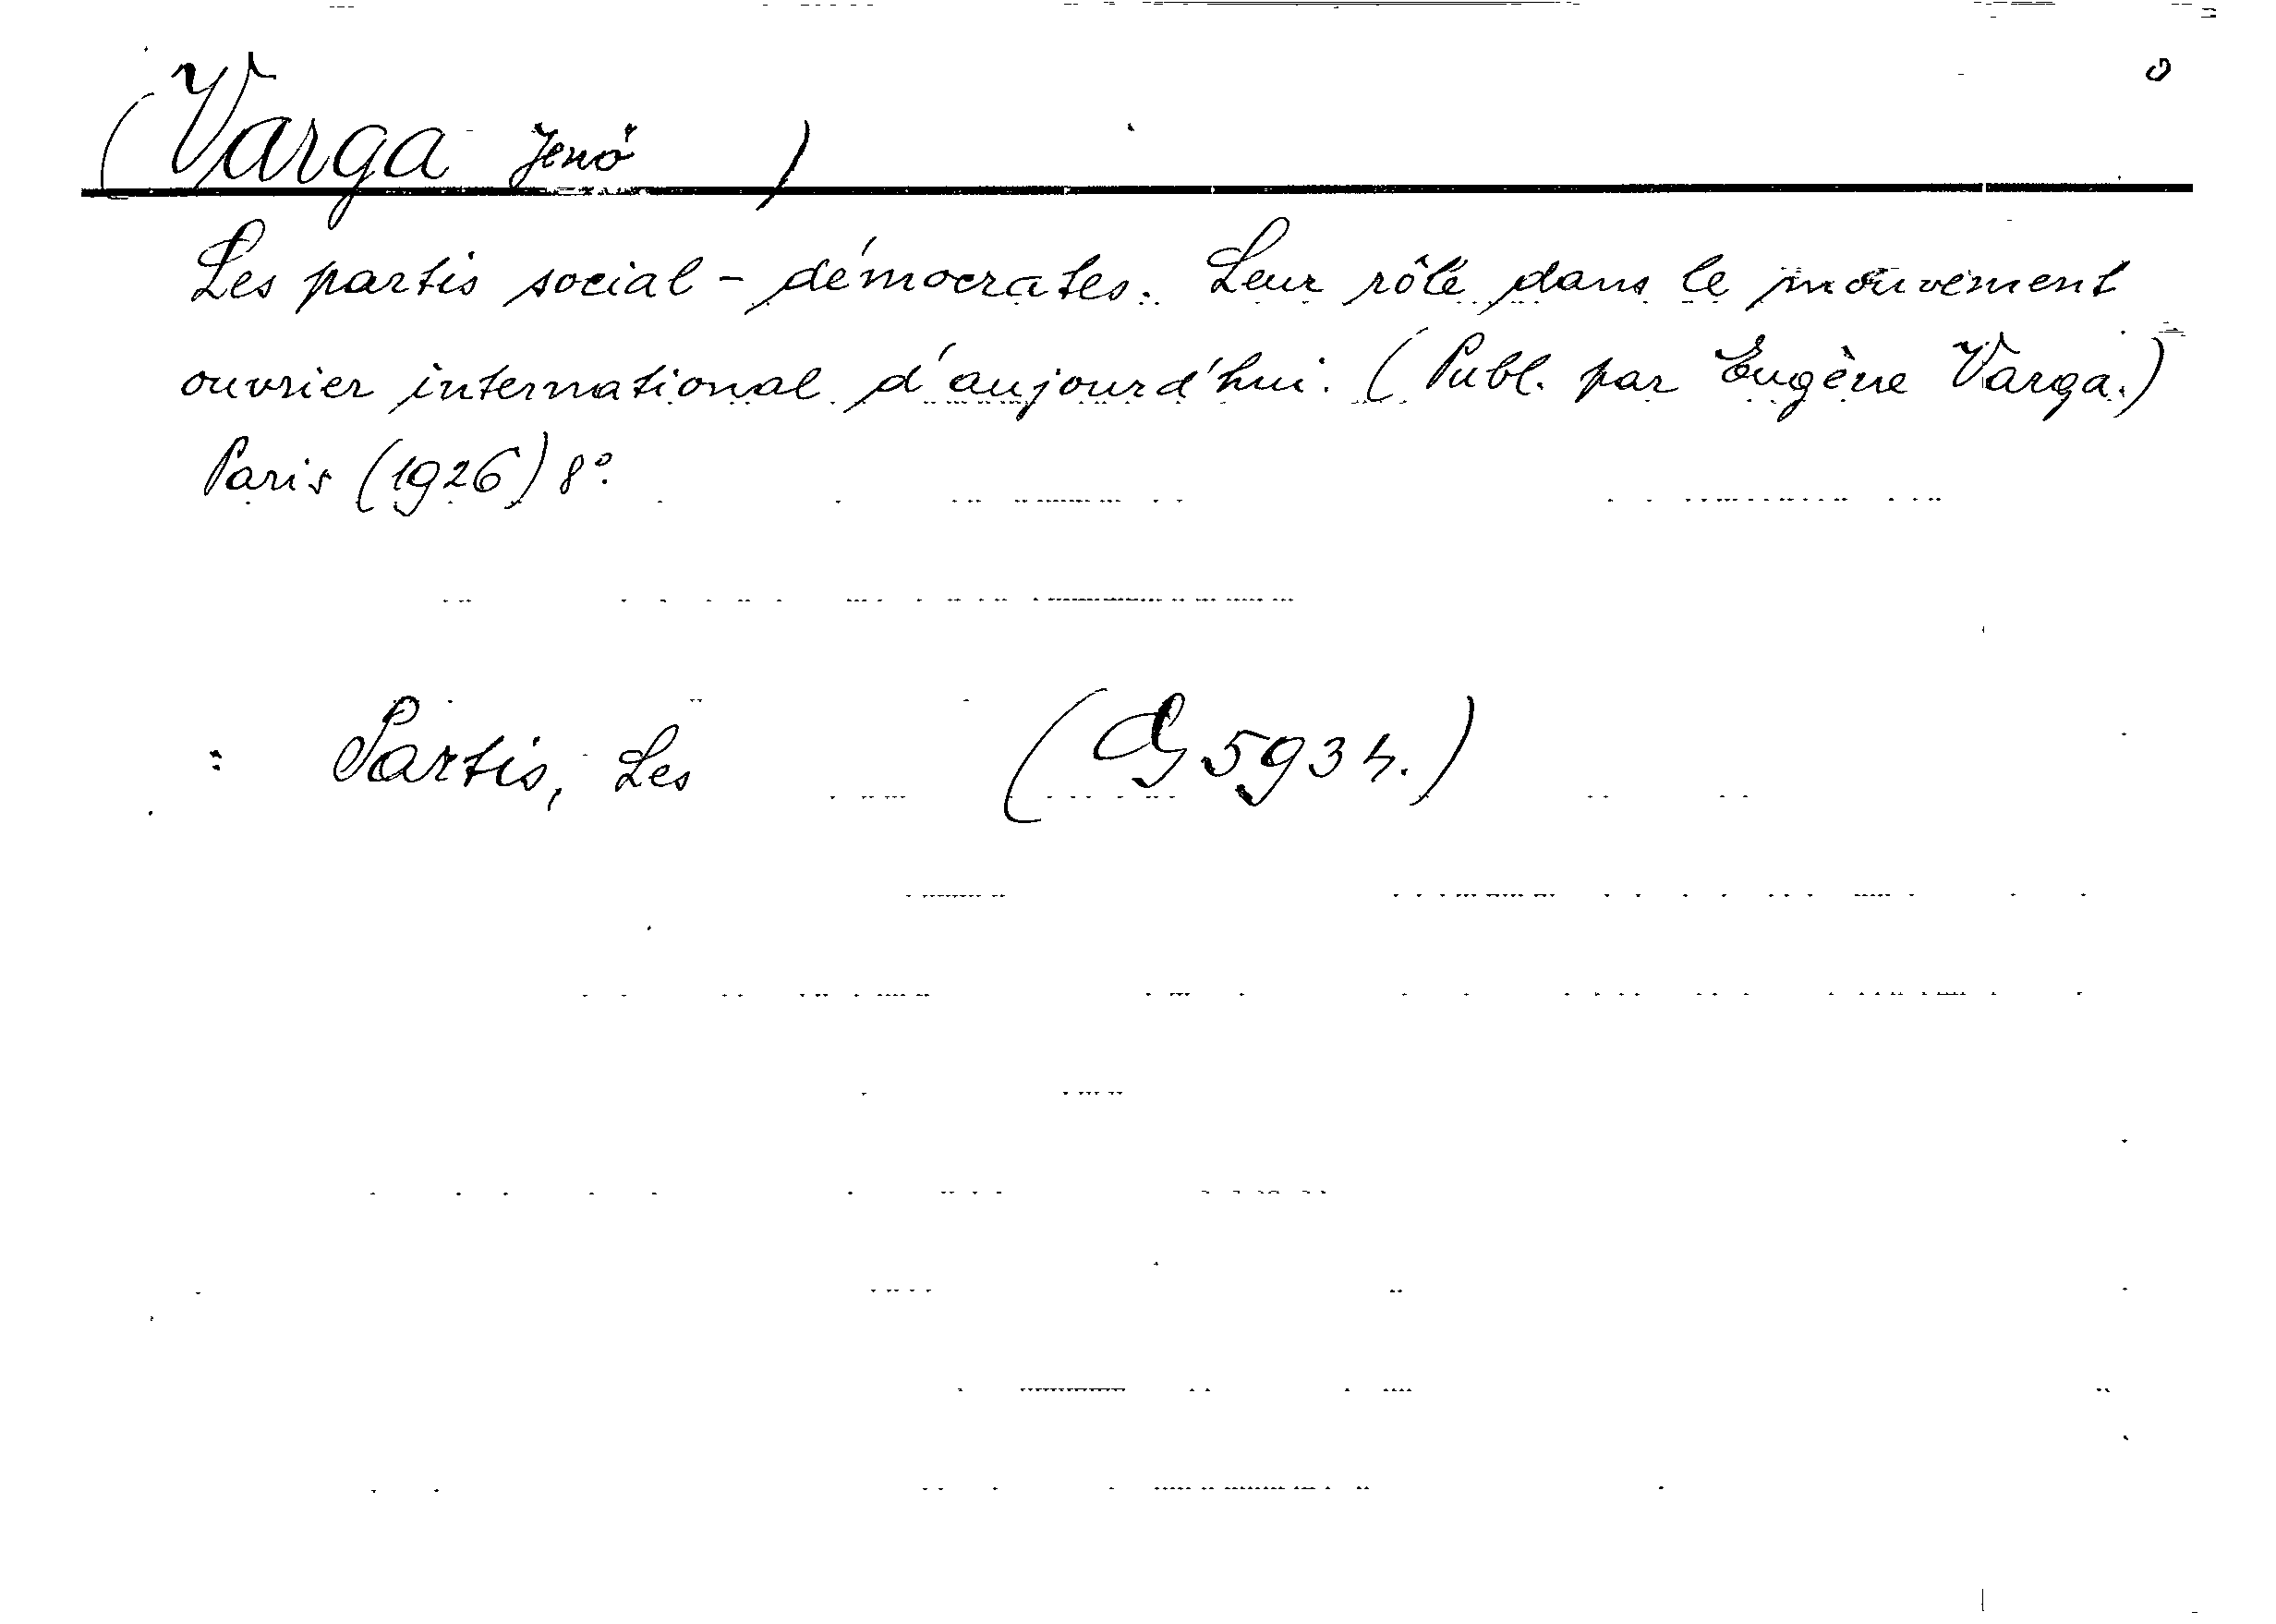 (Varga Jenő )
Les partis social-démocrates. Leur rôle dans le mouvement
ouvrier international d'aujourd'hui. (Publ. par Eugène Varga.)
Paris (1926) 8°.
: Partis, Les (G 5934.)